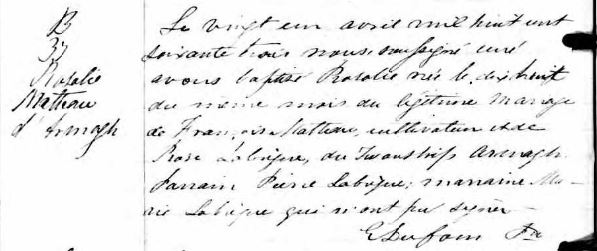 B
37
Rosalie
Mathieu
d'Armagh
Le vingt un avril mil huit cent
soixante trois nous soussigné curé
avons baptisé Rosalie née le dix huit
du même mois du légitime mariage
de François Mathieu, cultivateur et de
Rose Labrique, du Township Armagh.
Parrain Pierre Labrique; marraine Ma-
rie Labrique qui n'ont pu signer
Dufour Ptr